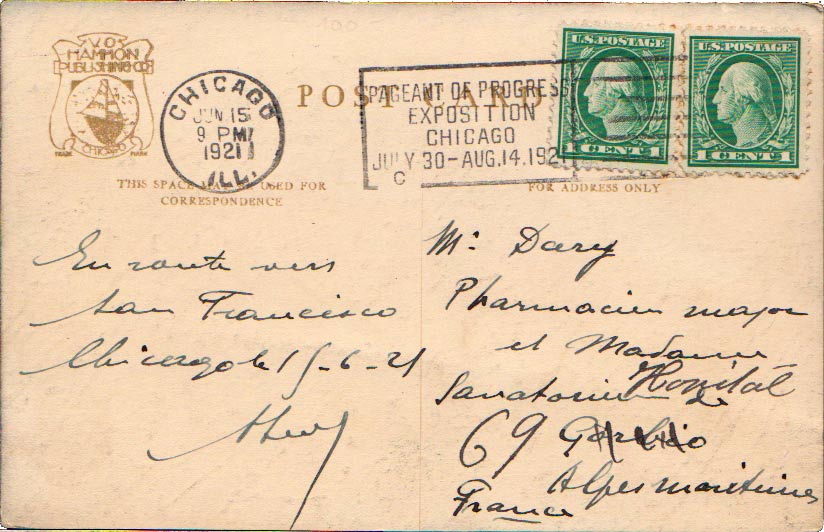 V.O.
HAMMON
PUBLISHING CO
CHICAGO
TRADE MARK
CHICAGO
JUN 15
9 PM
1921
ILL.
POST CARD
PAGEANT OF PROGRESS
EXPOSITION
CHICAGO
JULY 30-AUG.14.1921
C
U.S. POSTAGE
1 CENT 1
U.S. POSTAGE
1 CENT 1
THIS SPACE MAY BE USED FOR
CORRESPONDENCE
FOR ADDRESS ONLY
En route vers
San Francisco
Chicago le 15-6-21
Mr Dary
Pharmacien major
et Madame
Sanatorium de
Hopital
69 Gorbio
Alpes maritimes
France